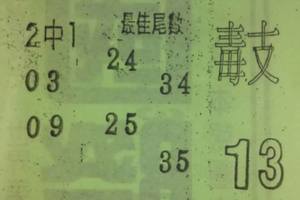 2中1 最佳尾数 毒支
24
03 34
09 25
35 13